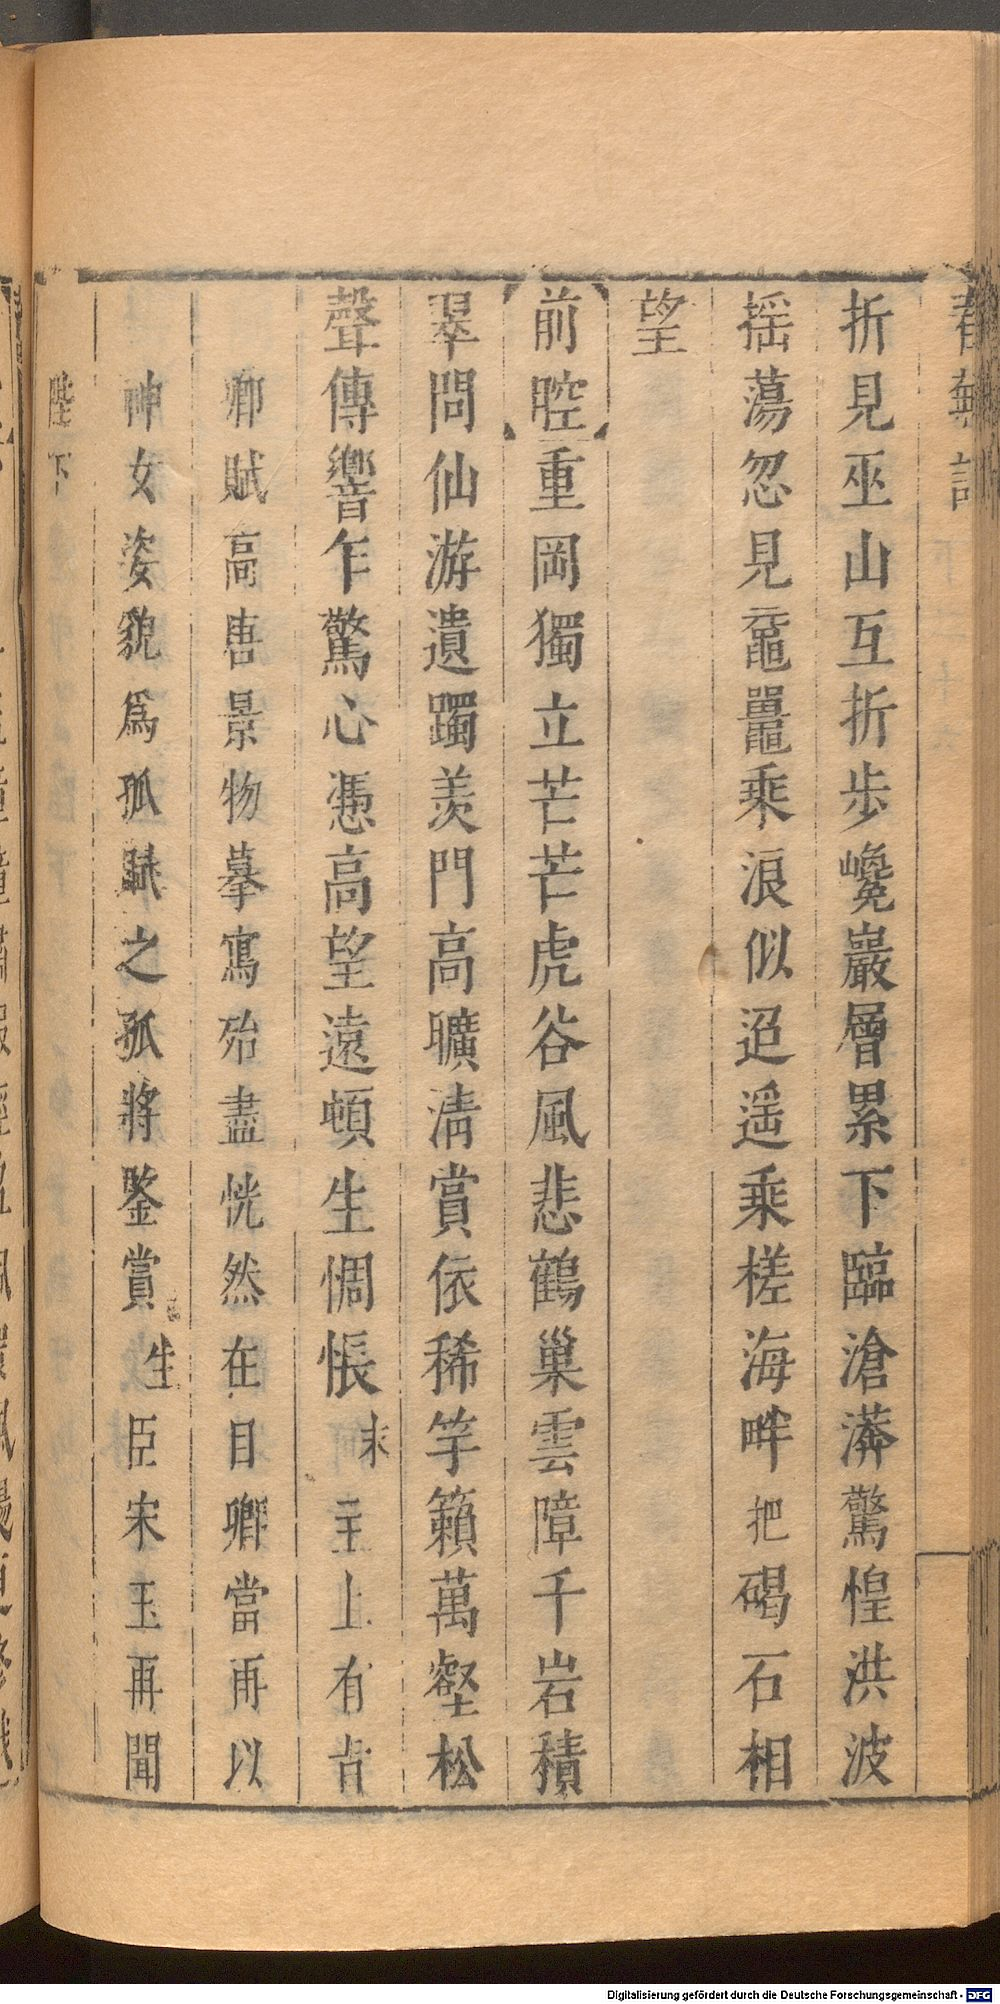 春蕪記
折見巫山互折歩巉巖層累下臨滄漭驚惶洪波
揺蕩忽見黿鼉乘浪似迢遥乘槎海畔把碣石相
望
前腔重岡獨立芒芒虎谷風悲鶴巢雲障千岩積
翠問仙游遺躅羡門高曠淸賞依稀竽籟萬壑松
聲傳響乍驚心憑高望遠頓生惆悵末主上有旨
卿賦高唐景物摹寫殆盡恍然在目卿當再以
神女姿貌爲孤賦之孤將鑒賞生臣宋玉再聞
陛下
Digitalisierung gefördert durch die Deutsche Forschungsgemeinschaft - DFG